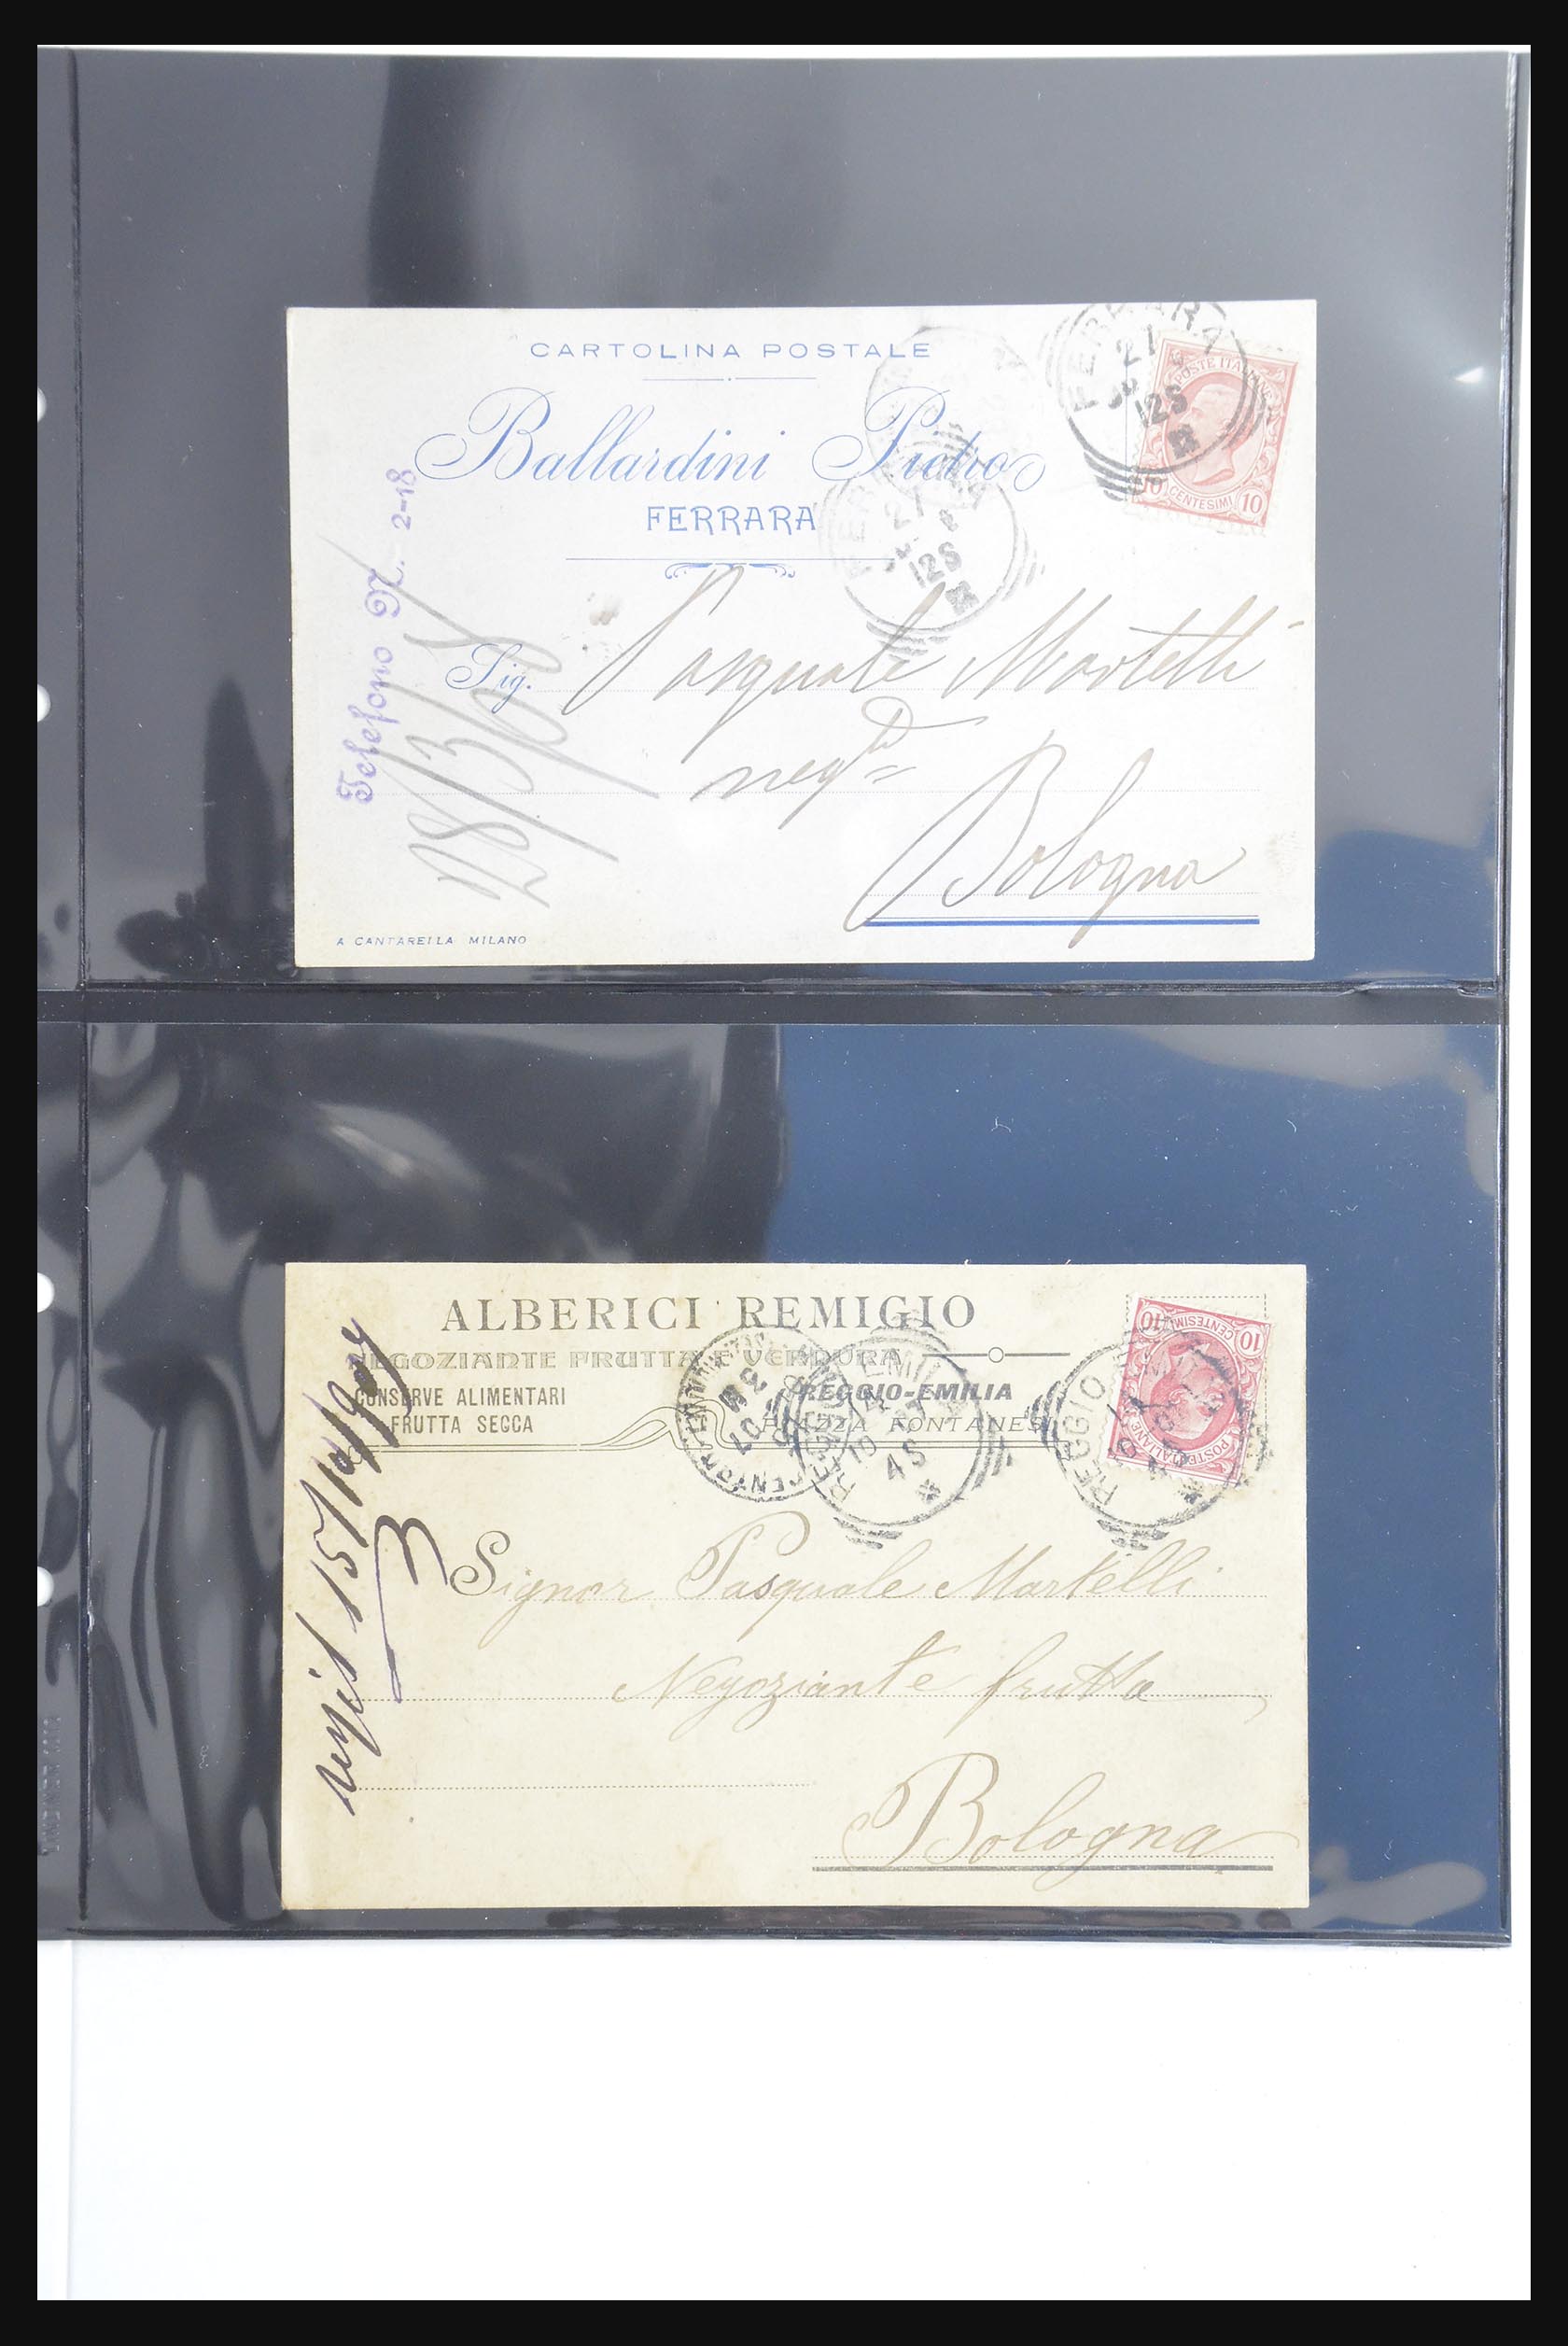 CARTOLINA POSTALE
Ballardini Pietro
FERRARA
Telefono N. 2-18
28/3/
Sig. Pasquale Martelli
negte
Bologna
A CANTARELLA MILANO
FERRARA
27
12S
POSTE ITALIANE
10 CENTESIMI 10
FERRARA
27
12S
ALBERICI REMIGIO
NEGOZIANTE FRUTTA E VERDURA
CONSERVE ALIMENTARI
FRUTTA SECCA
REGGIO-EMILIA
PIAZZA FONTANESI
15/10/907
Signor Pasquale Martelli
Negoziante frutta
Bologna
REGGIO EMILIA
10
4S
REGGIO
POSTE ITALIANE
10 CENTESIMI 10